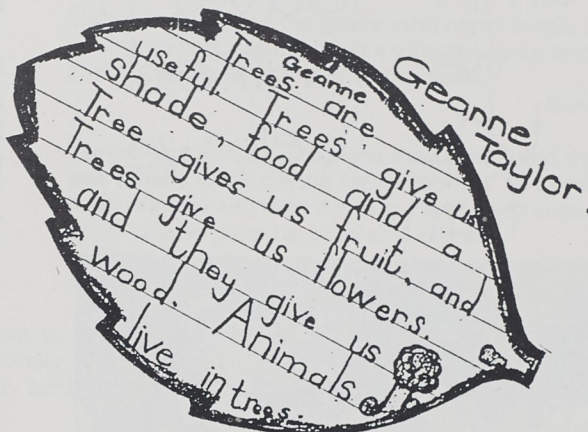 Geanne
Taylor.
Geanne
Trees are
useful. Trees give us
shade, food and a
Tree gives us fruit, and
Trees give us flowers.
and they give us
wood. Animals
live in trees.